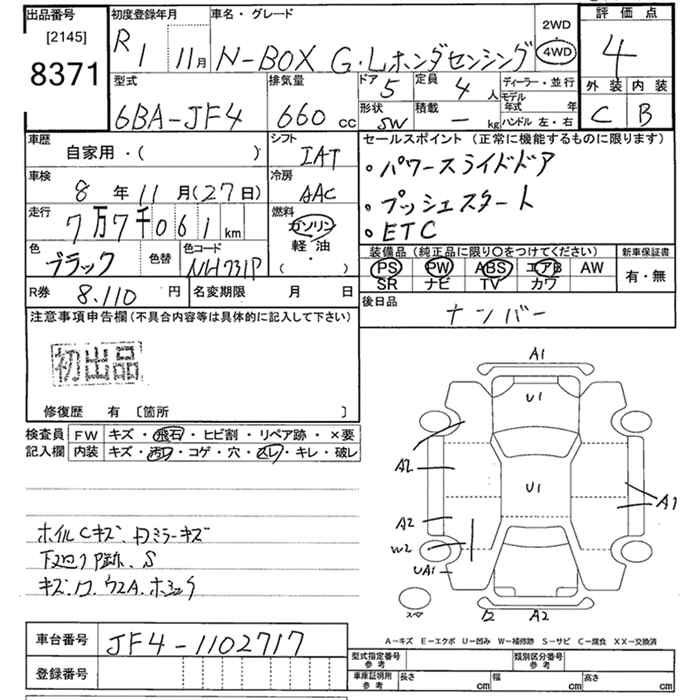 出品番号 初度登録年月 車名・グレード 2WD 4WD 評価点
[2145] 8371 R1 11月 N-BOX G・Lホンダセンシング 4
型式 排気量 ドア 5 定員 4人 ディーラー・並行 外装 内装
6BA-JF4 660cc 形状 SW 積載 - kg モデル年式 年 ハンドル 左・右 C B
車歴 シフト セールスポイント (正常に機能するものに限ります)
自家用・( ) IAT ・パワースライドドア
車検 冷房
8年11月(27日) AAC ・プッシュスタート
走行 7万7千061km 燃料 ガソリン ・ETC
軽油・( )
色 ブラック 色替 色コード NH731P 装備品 (純正品に限り〇をつけてください) 新車保証書
PS PW ABS エアB AW 有・無
SR ナビ TV カワ
R券 8,110円 名変期限 月 日 後日品
ナンバー
注意事項申告欄 (不具合内容等は具体的に記入して下さい)
初出品
修復歴 有 [箇所 ]
検査員 FW キズ・飛石・ヒビ割・リペア跡・×要
記入欄 内装 キズ・汚レ・コゲ・穴・スレ・キレ・破レ
A1
U1
A2
U1
A1
A2
W2
UA1
A2
ホイルCキズ
下廻り
車台番号 JF4-1102717
登録番号
A-キズ E-エクボ U-凹み W-補修跡 S-サビ C-腐食 XX-交換済
型式指定番号 参考 類別区分番号 参考
車庫証明用 参考 長さ cm 幅 cm 高さ cm